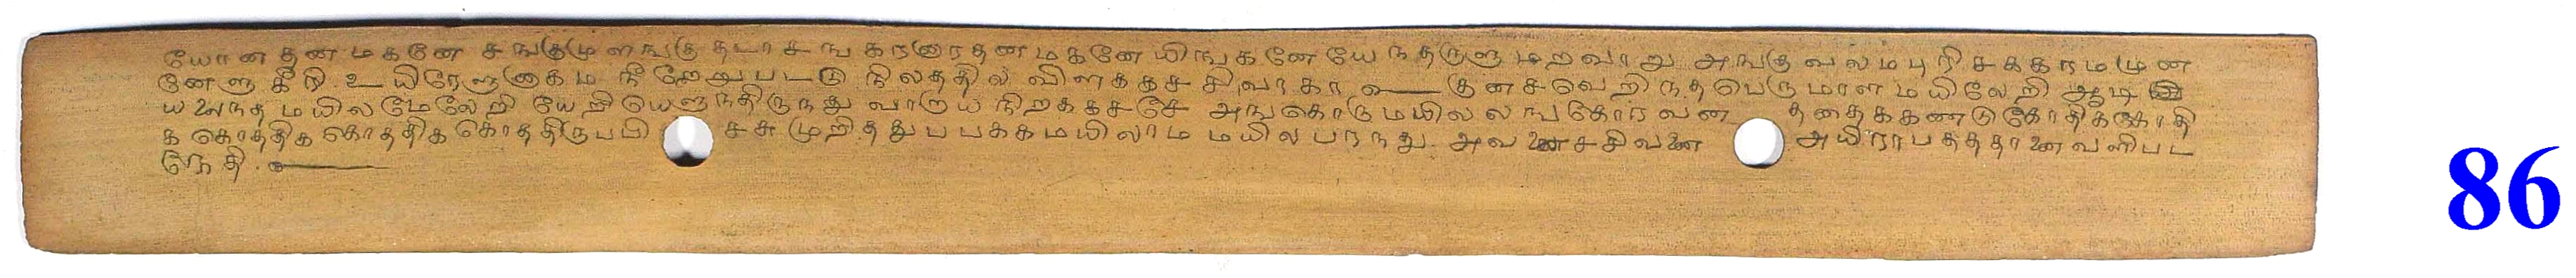 யோன தன மகனே சஙகுமுளஙகு தடாசஙகரனாரதன மகனே யிஙகனேயே நதருளு மறவாது அஙகு வலமபுரி சககரமமுன
னேளுகீரி உயிரேளுளுகம நீறேறுபடடு நிலததில விளககசசிவாகா குனசவெறிநதபெருமாள மயிலேறி ஆடி
ய அநத மயிலமேலேறி யேறி யெளுநதிருநது வாறாய நிறககசசே அஙகொருமயிலலஙகோரவன தனதைககணடு கோதிககோதி
க கொததிக கொததிக கொததிருபபி சசு முறிதது பபககமயிலாம மயில பரநது அவனைசசிவனை அயிராபதததானை வளிபட
நேதி